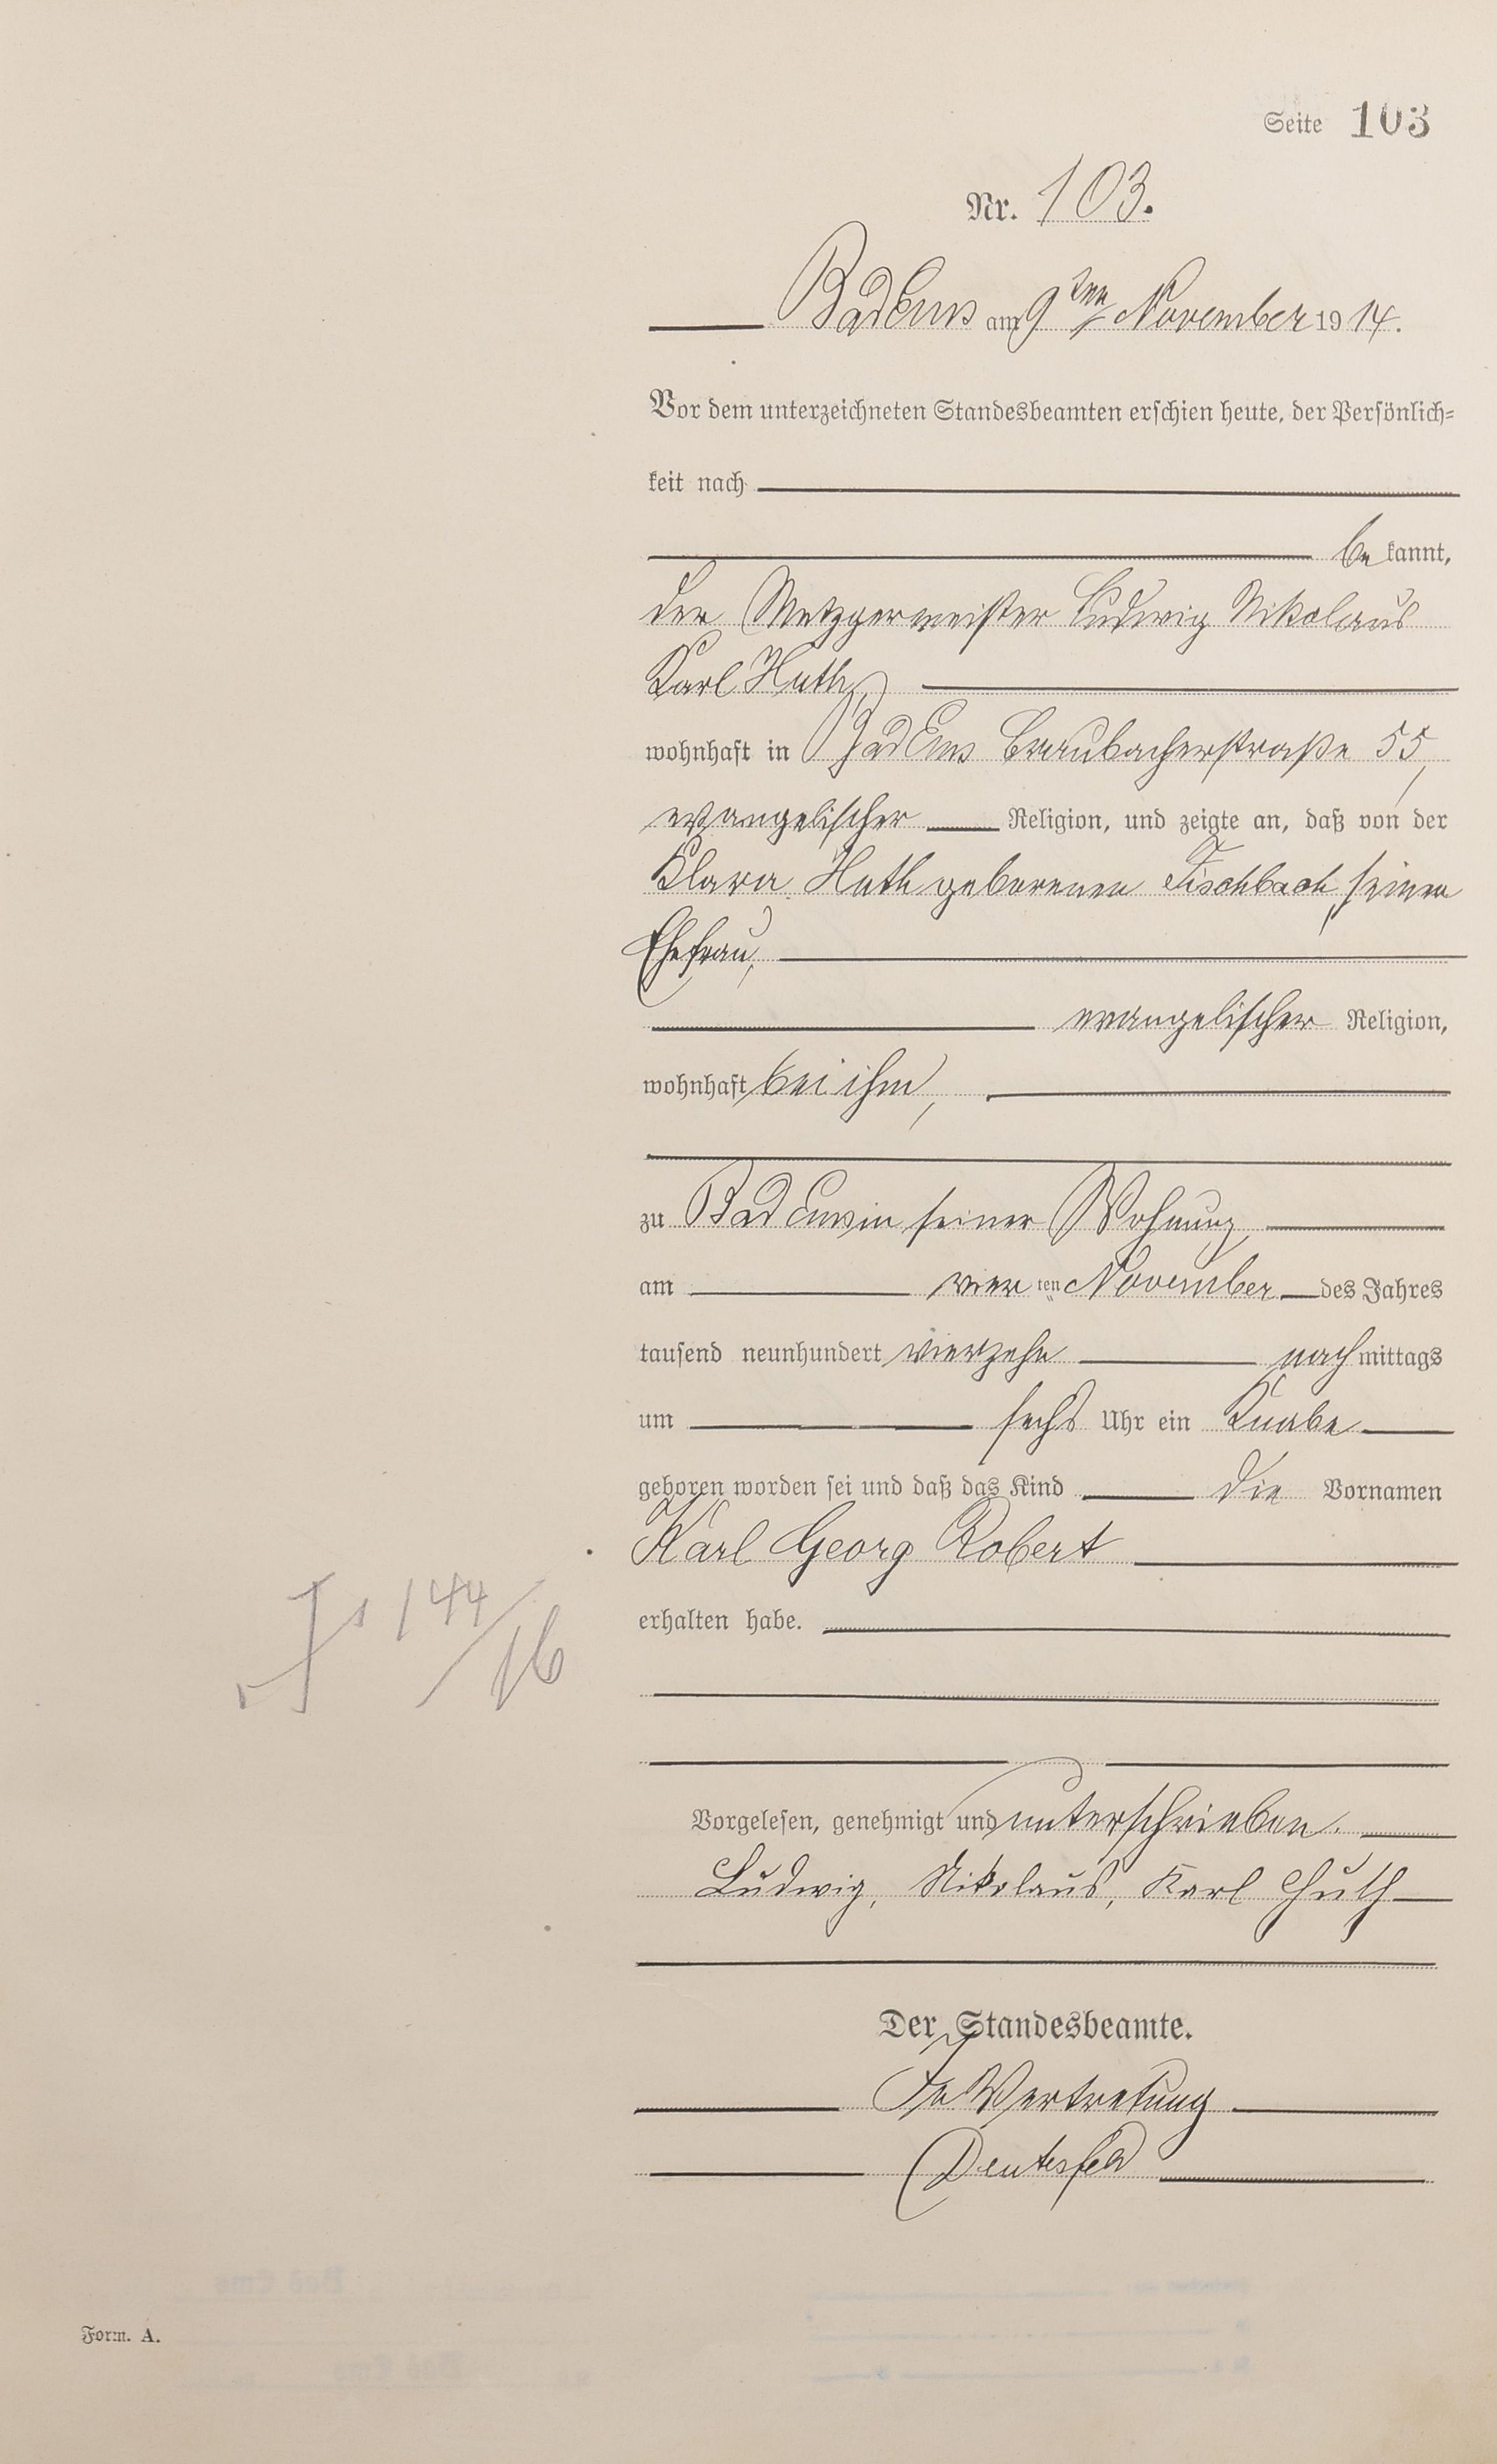 Seite 103
Nr. 103.
Bad Ems am 9ten November 1914.
Vor dem unterzeichneten Standesbeamten erschien heute, der Persönlich-
keit nach
be kannt,
der Metzgermeister Ludwig Nikolaus
Karl Huth,
wohnhaft in Bad Ems Braubacherstraße 55,
evangelischer Religion, und zeigte an, daß von der
Klara Huth geborenen Fischbach, seiner
Ehefrau,
evangelischer Religion,
wohnhaft bei ihm,
zu Bad Ems in seiner Wohnung,
am vier ten November des Jahres
tausend neunhundert vierzehn nach mittags
um sechs Uhr ein Knabe
geboren worden sei und daß das Kind die Vornamen
Karl Georg Robert
erhalten habe.
144/16
Vorgelesen, genehmigt und unterschrieben.
Ludwig, Nikolaus, Karl Huth
Der Standesbeamte.
In Vertretung
Form. A.